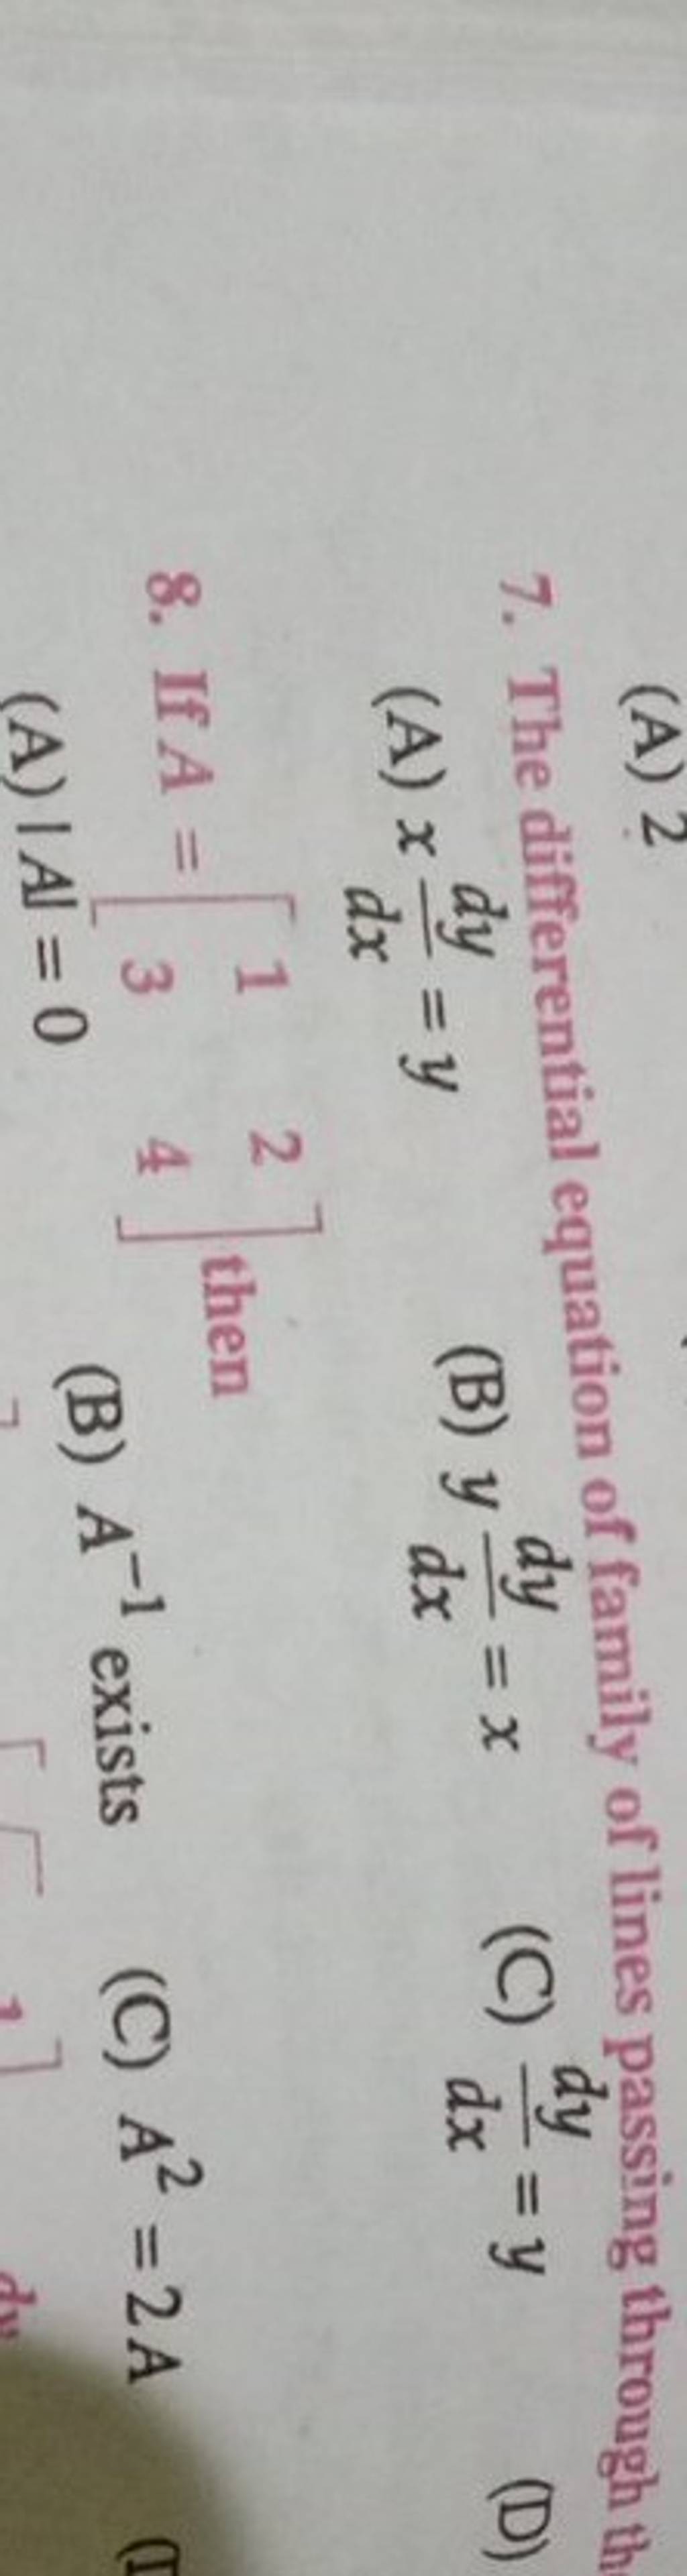 (A) 2
7. The differential equation of family of lines passing through
(A) x dy/dx = y (B) y dy/dx = x (C) dy/dx = y (D)
8. If A = [ 1 2
3 4 ] then
(A) |A| = 0 (B) A⁻¹ exists (C) A² = 2A